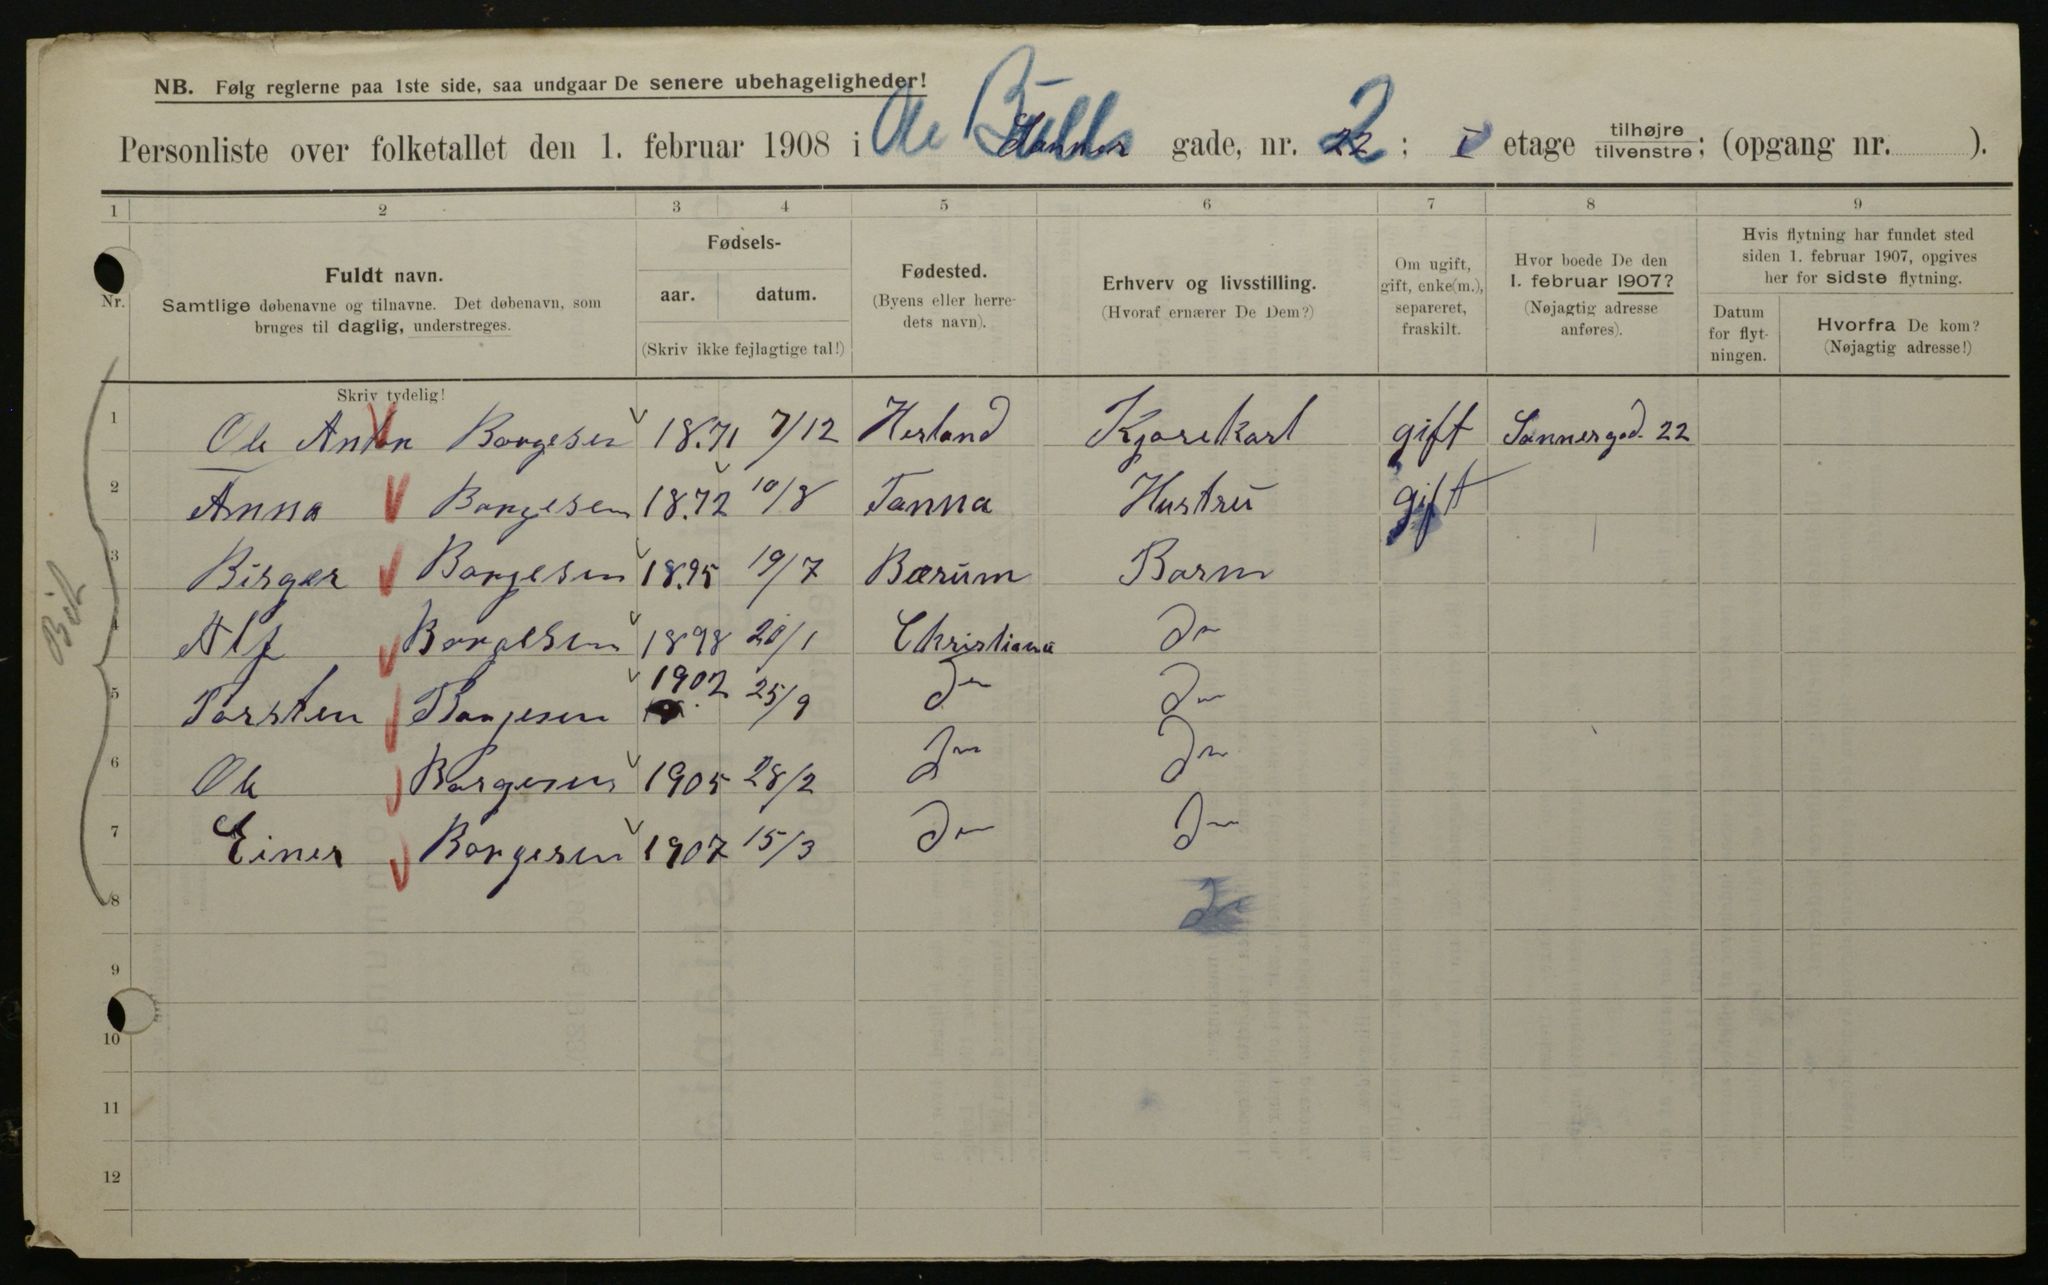 NB. Følg reglerne paa 1ste side, saa undgaar De senere ubehageligheder!
Personliste over folketallet den 1. februar 1908 i Ole Bulls Sanner gade, nr. 22 2; I etage tilhøjre tilvenstre; (opgang nr. ).
1 2 3 4 5 6 7 8 9
Nr.
Fuldt navn.
Samtlige døbenavne og tilnavne. Det døbenavn, som
bruges til daglig, understreges.
Fødsels-
aar. datum.
(Skriv ikke fejlagtige tal!)
Fødested.
(Byens eller herre-
dets navn).
Erhverv og livsstilling.
(Hvoraf ernærer De Dem?)
Om ugift,
gift, enke(m.),
separeret,
fraskilt.
Hvor boede De den
1. februar 1907?
(Nøjagtig adresse
anføres).
Hvis flytning har fundet sted
siden 1. februar 1907, opgives
her for sidste flytning.
Datum
for flyt-
ningen.
Hvorfra De kom?
(Nøjagtig adresse!)
Skriv tydelig!
1 Ole Anton Borgesen 1871 7/12 Herland Kjørekarl gift Sannergad. 22
2 Anna Borgesen 1872 10/8 Tanna Hustru gift
3 Birger Borgesen 1895 19/7 Bærum Barn
4 Alf Borgesen 1898 20/1 Christiana Do
5 Torsten Borgesen 1902 25/9 Do Do
6 Ole Borgesen 1905 28/2 Do Do
7 Einer Borgesen 1907 15/3 Do Do
8 Do
9
10
11
12